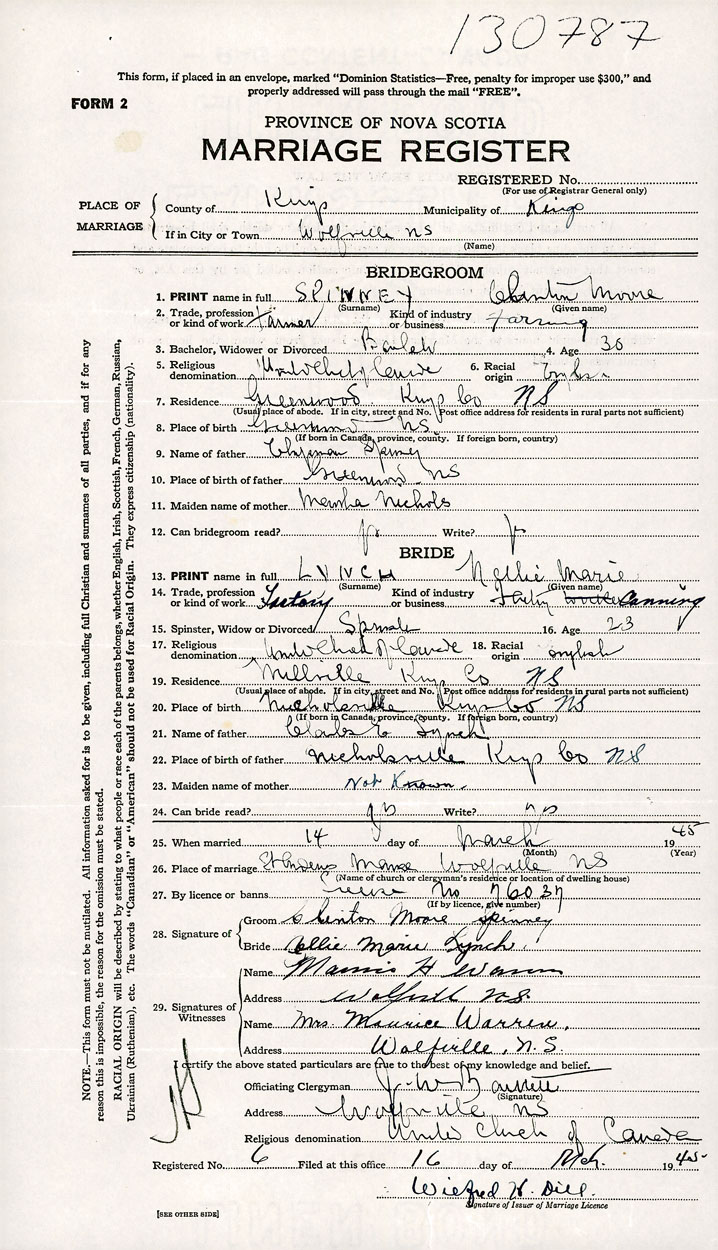 130787
This form, if placed in an envelope, marked "Dominion Statistics—Free, penalty for improper use $300," and
properly addressed will pass through the mail "FREE".
FORM 2
PROVINCE OF NOVA SCOTIA
MARRIAGE REGISTER
REGISTERED No.
(For use of Registrar General only)
PLACE OF MARRIAGE
County of Kings Municipality of Kings
If in City or Town Wolfville NS
(Name)
BRIDEGROOM
1. PRINT name in full SPINNEY Clinton Moore
(Surname) (Given name)
2. Trade, profession or kind of work Farmer Kind of industry or business Farming
3. Bachelor, Widower or Divorced Bachelor 4. Age 36
5. Religious denomination United Church of Canada 6. Racial origin English
7. Residence Greenwood Kings Co NS
(Usual place of abode. If in city, street and No. Post office address for residents in rural parts not sufficient)
8. Place of birth Greenwood NS
(If born in Canada, province, county. If foreign born, country)
9. Name of father Chapman Spinney
10. Place of birth of father Greenwood NS
11. Maiden name of mother Nichols
12. Can bridegroom read? Write?
BRIDE
13. PRINT name in full LYNCH Nellie Marie
(Surname) (Given name)
14. Trade, profession or kind of work Factory Kind of industry or business Canning
15. Spinster, Widow or Divorced 16. Age 23
17. Religious denomination United Church of Canada 18. Racial origin English
19. Residence Millville Kings Co NS
(Usual place of abode. If in city, street and No. Post office address for residents in rural parts not sufficient)
20. Place of birth Nicholsville Kings Co NS
(If born in Canada, province, county. If foreign born, country)
21. Name of father Charles E Lynch
22. Place of birth of father Nicholsville Kings Co NS
23. Maiden name of mother Not Known.
24. Can bride read? yes Write? yes
25. When married 14 day of March 1945
(Month) (Year)
26. Place of marriage St Andrews Manse Wolfville NS
(Name of church or clergyman's residence or location of dwelling house)
27. By licence or banns No 76037
(If by licence, give number)
28. Signature of
Groom Clinton Moore Spinney
Bride Nellie Marie Lynch.
29. Signatures of Witnesses
Name Warren
Address Wolfville N.S.
Name Mrs. Maurice Warren.
Address Wolfville, N.S
I certify the above stated particulars are true to the best of my knowledge and belief.
Officiating Clergyman
(Signature)
Address Wolfville NS
Religious denomination United Church of Canada
Registered No. 6 Filed at this office 16 day of Mch. 1945
Wilfred H. Dill.
Signature of Issuer of Marriage Licence
[SEE OTHER SIDE]
NOTE.—This form must not be mutilated. All information asked for is to be given, including full Christian and surnames of all parties, and if for any
reason this is impossible, the reason for the omission must be stated.
RACIAL ORIGIN will be described by stating to what people or race each of the parents belongs, whether English, Irish, Scottish, French, German, Russian,
Ukrainian (Ruthenian), etc. The words "Canadian" or "American" should not be used for Racial Origin. They express citizenship (nationality).